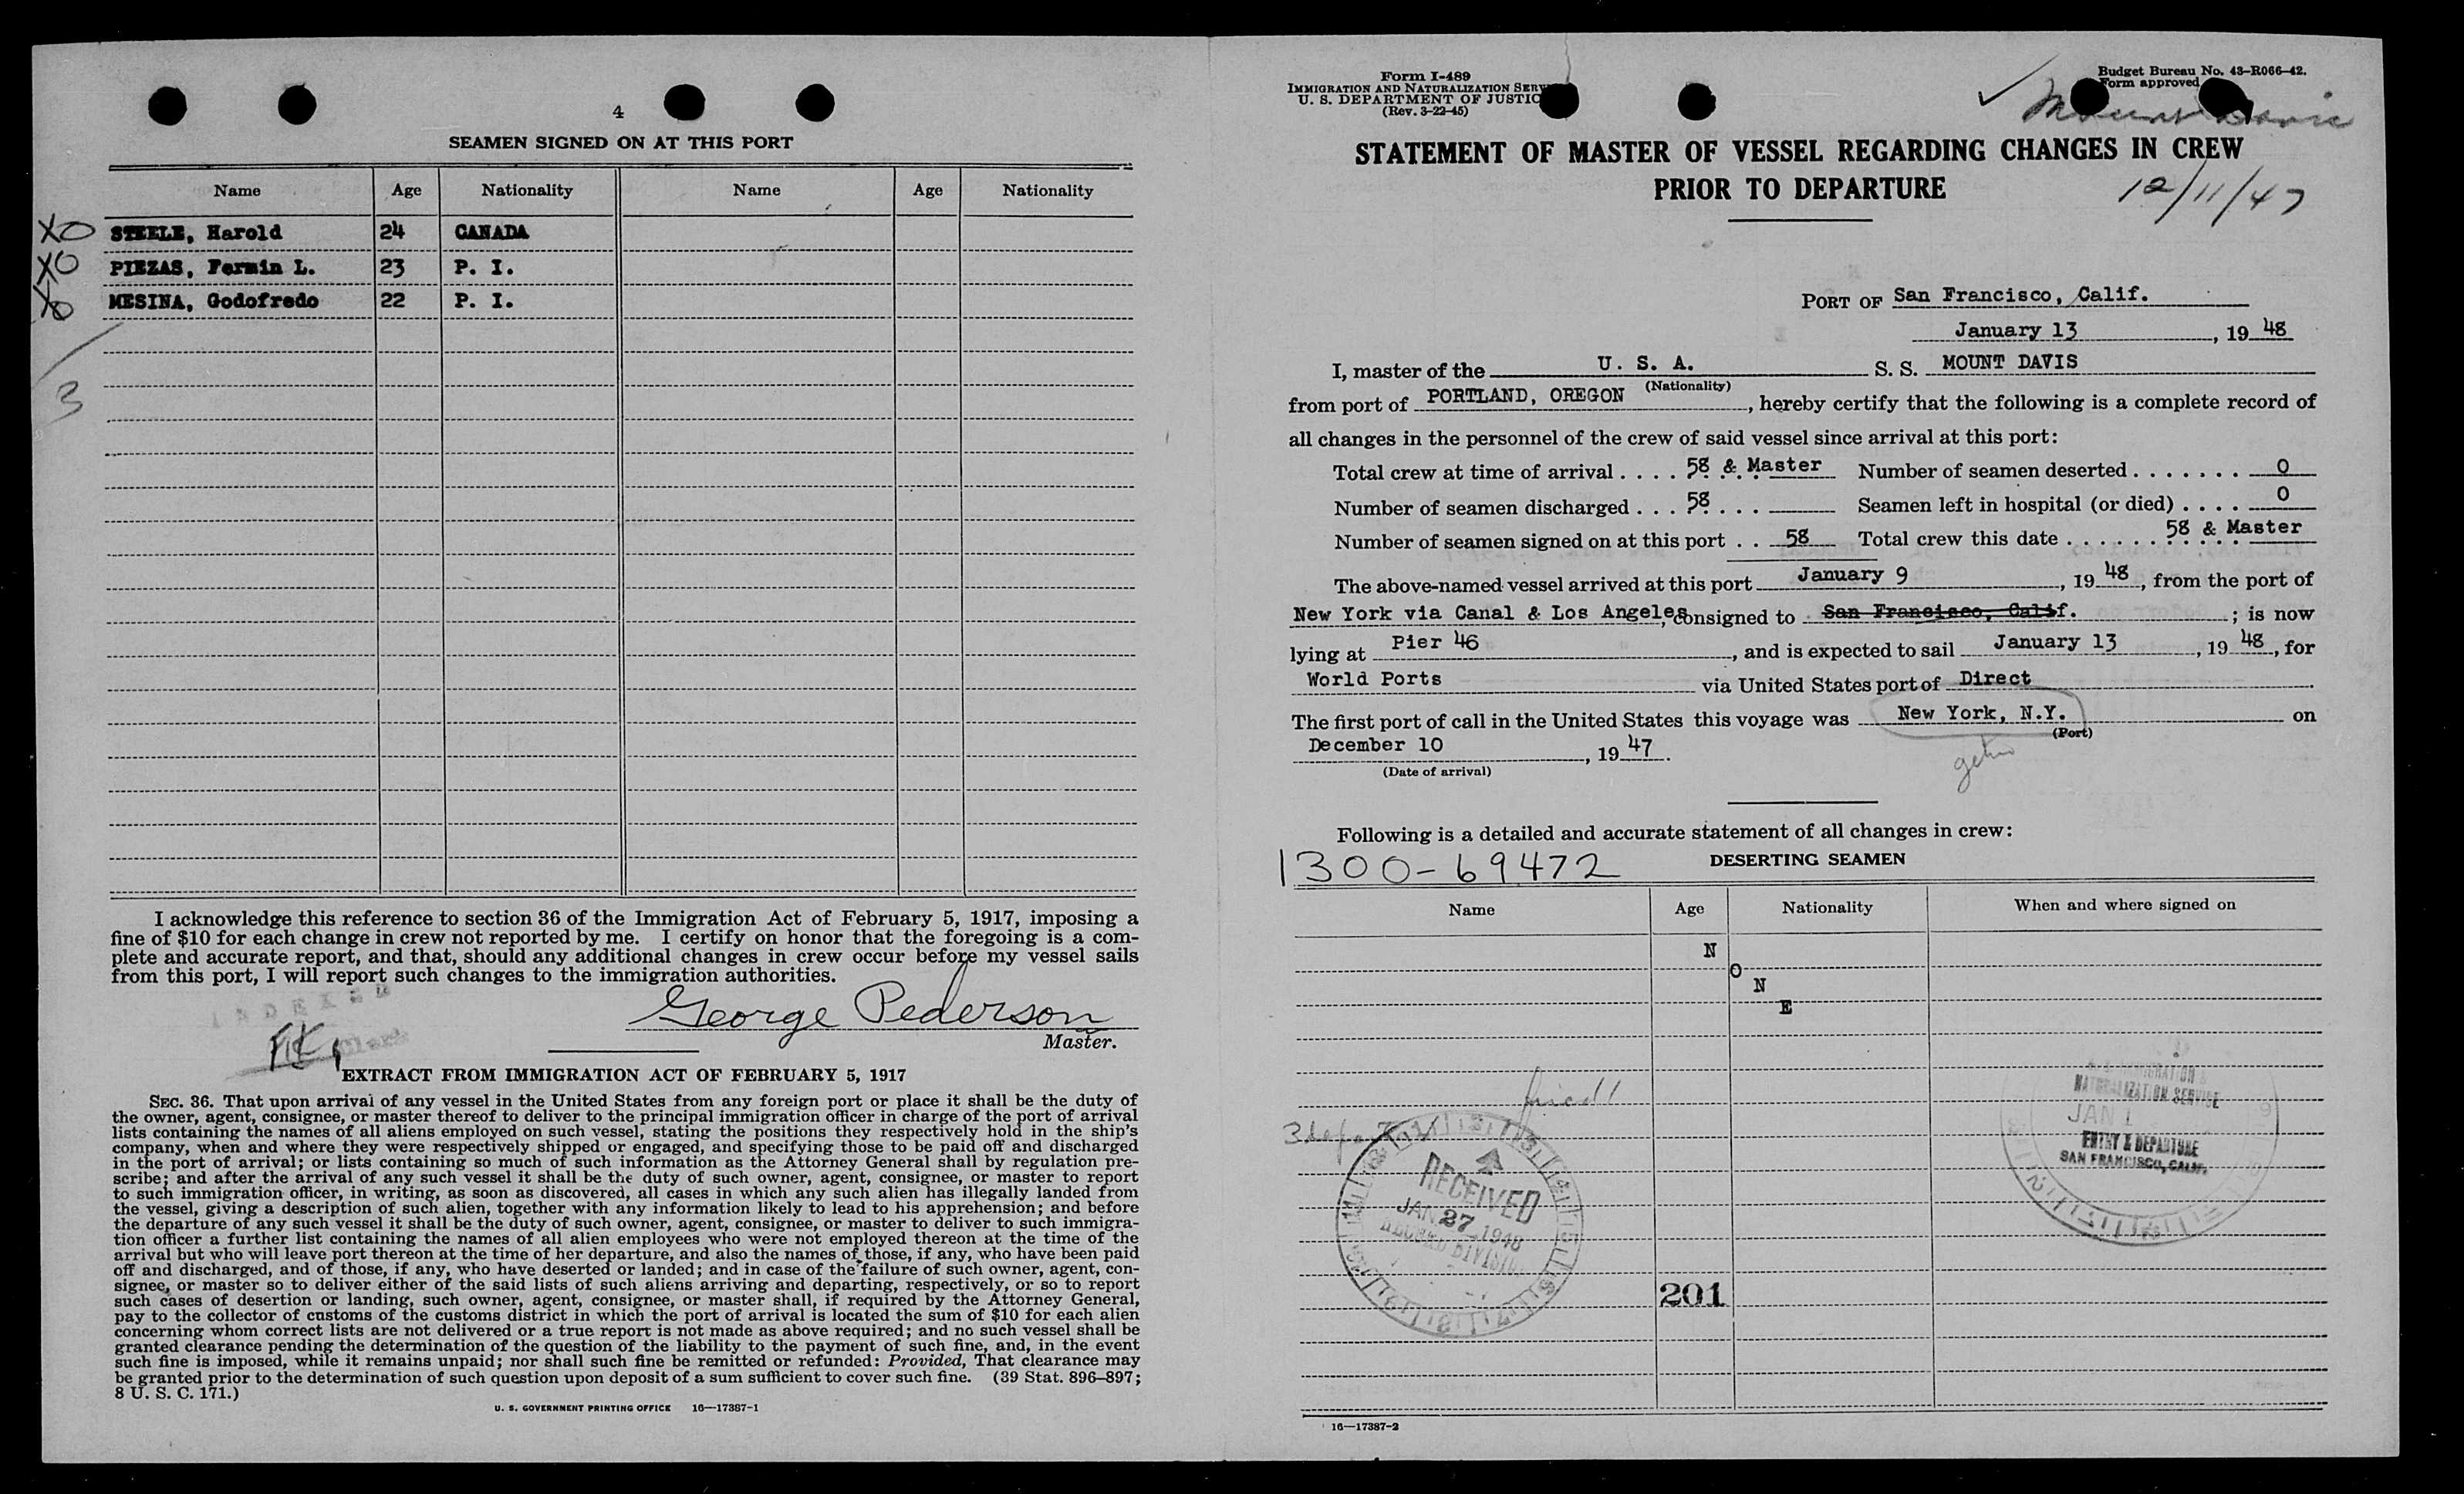 4
SEAMEN SIGNED ON AT THIS PORT
Name Age Nationality Name Age Nationality
XO STEELE, Harold 24 CANADA
XO PIEZAS, Fermin L. 23 P. I.
XO MESINA, Godofredo 22 P. I.
3
I acknowledge this reference to section 36 of the Immigration Act of February 5, 1917, imposing a
fine of $10 for each change in crew not reported by me. I certify on honor that the foregoing is a com-
plete and accurate report, and that, should any additional changes in crew occur before my vessel sails
from this port, I will report such changes to the immigration authorities.
INDEXED
George Pederson
Master.
EXTRACT FROM IMMIGRATION ACT OF FEBRUARY 5, 1917
SEC. 36. That upon arrival of any vessel in the United States from any foreign port or place it shall be the duty of
the owner, agent, consignee, or master thereof to deliver to the principal immigration officer in charge of the port of arrival
lists containing the names of all aliens employed on such vessel, stating the positions they respectively hold in the ship's
company, when and where they were respectively shipped or engaged, and specifying those to be paid off and discharged
in the port of arrival; or lists containing so much of such information as the Attorney General shall by regulation pre-
scribe; and after the arrival of any such vessel it shall be the duty of such owner, agent, consignee, or master to report
to such immigration officer, in writing, as soon as discovered, all cases in which any such alien has illegally landed from
the vessel, giving a description of such alien, together with any information likely to lead to his apprehension; and before
the departure of any such vessel it shall be the duty of such owner, agent, consignee, or master to deliver to such immigra-
tion officer a further list containing the names of all alien employees who were not employed thereon at the time of the
arrival but who will leave port thereon at the time of her departure, and also the names of those, if any, who have been paid
off and discharged, and of those, if any, who have deserted or landed; and in case of the failure of such owner, agent, con-
signee, or master so to deliver either of the said lists of such aliens arriving and departing, respectively, or so to report
such cases of desertion or landing, such owner, agent, consignee, or master shall, if required by the Attorney General,
pay to the collector of customs of the customs district in which the port of arrival is located the sum of $10 for each alien
concerning whom correct lists are not delivered or a true report is not made as above required; and no such vessel shall be
granted clearance pending the determination of the question of the liability to the payment of such fine, and, in the event
such fine is imposed, while it remains unpaid; nor shall such fine be remitted or refunded: Provided, That clearance may
be granted prior to the determination of such question upon deposit of a sum sufficient to cover such fine. (39 Stat. 896–897;
8 U. S. C. 171.)
U. S. GOVERNMENT PRINTING OFFICE 16—17387-1
Form I-489
IMMIGRATION AND NATURALIZATION SERV
U. S. DEPARTMENT OF JUSTIC
(Rev. 3-22-45)
Budget Bureau No. 43-R066-42.
Form approved
Mount Davis
STATEMENT OF MASTER OF VESSEL REGARDING CHANGES IN CREW
PRIOR TO DEPARTURE
12/11/47
PORT OF San Francisco, Calif.
January 13, 19 48
I, master of the U. S. A. S. S. MOUNT DAVIS
(Nationality)
from port of PORTLAND, OREGON, hereby certify that the following is a complete record of
all changes in the personnel of the crew of said vessel since arrival at this port:
Total crew at time of arrival . . . . 58 & Master Number of seamen deserted . . . . . . . 0
Number of seamen discharged . . . 58 . . . Seamen left in hospital (or died) . . . . 0
Number of seamen signed on at this port . . 58 Total crew this date . . . . . . 58 & Master
The above-named vessel arrived at this port January 9, 19 48, from the port of
New York via Canal & Los Angeles, consigned to San Francisco, Calif. ; is now
lying at Pier 46, and is expected to sail January 13, 19 48, for
World Ports via United States port of Direct.
The first port of call in the United States this voyage was New York, N.Y. on
(Port)
December 10, 19 47.
(Date of arrival)
Following is a detailed and accurate statement of all changes in crew:
1300-69472
DESERTING SEAMEN
Name Age Nationality When and where signed on
N
O
N
E
NATURALIZATION SERVICE
JAN 1
ENTRY & DEPARTURE
SAN FRANCISCO, CALIF.
RECEIVED
JAN 27 1948
RECORD DIVISION
201
16—17387-2